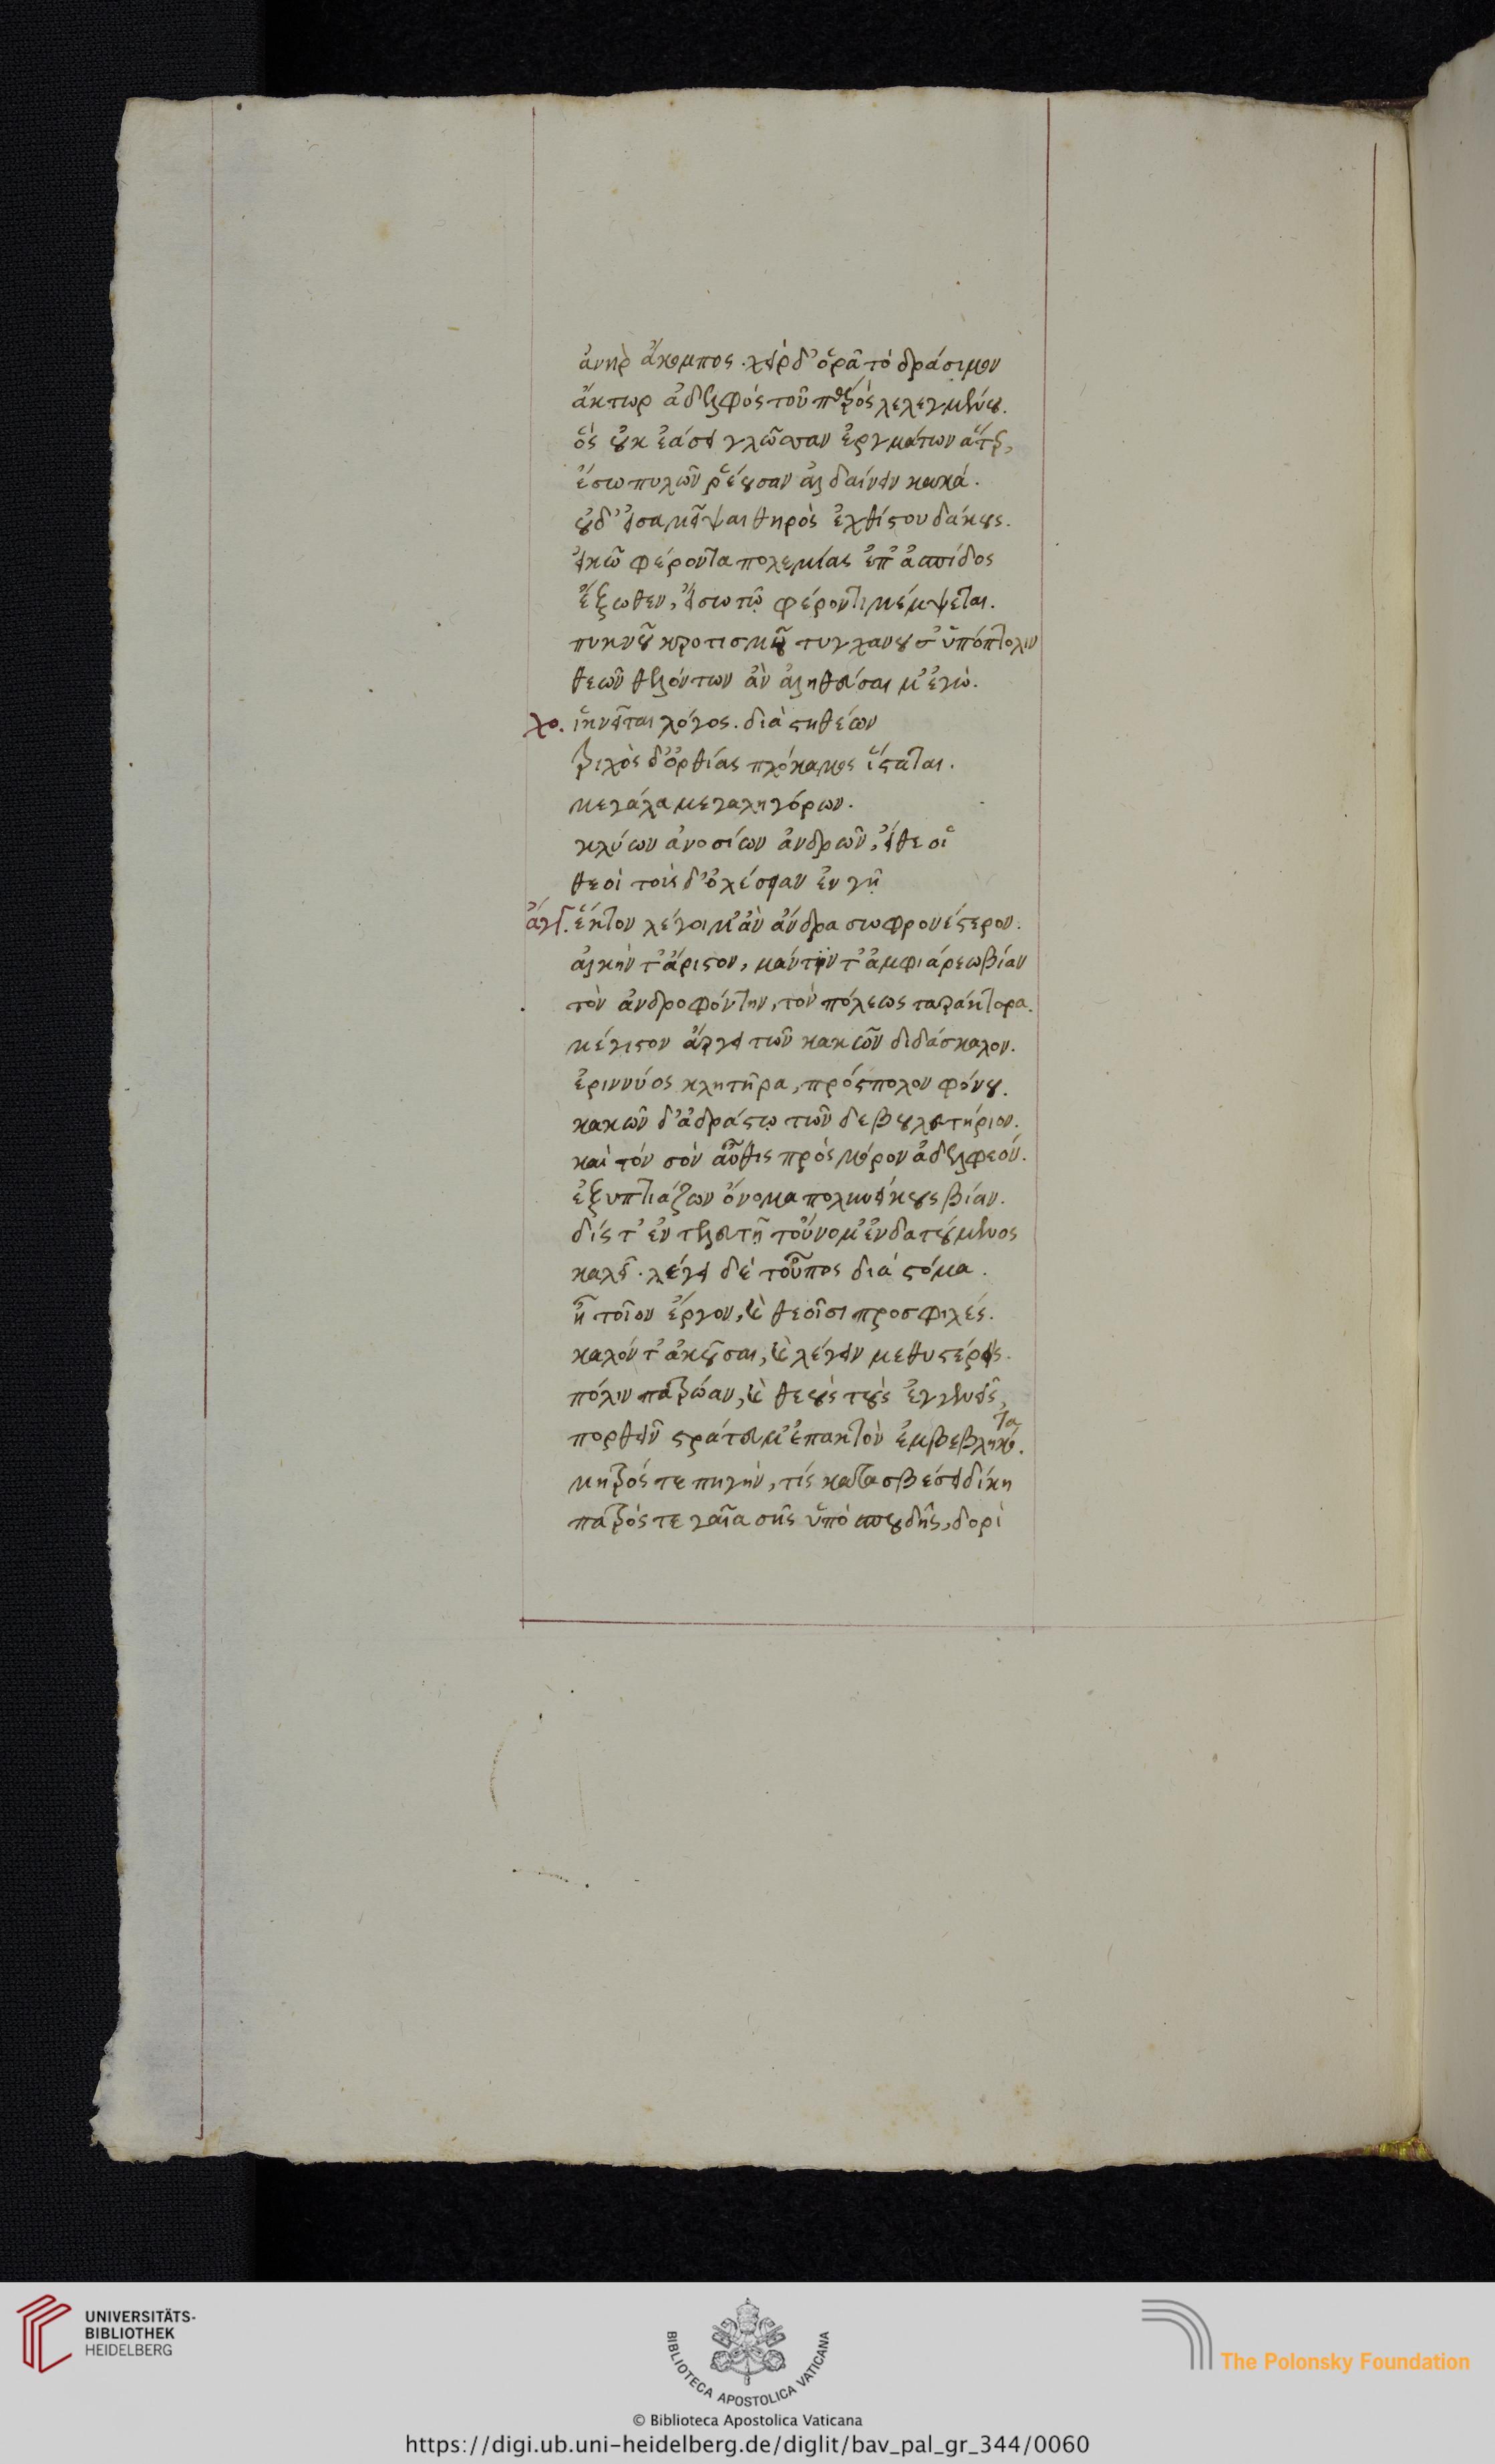 ἀνὴρ ἄκομπος. χεὶρ δ' ὁρᾶ τὸ δράσιμον
ἄκτωρ ἀδελφὸς τοῦ πάρος λελεγμένου.
ὃς οὐκ ἐάσει γλῶσσαν ἐργμάτων ἄτερ,
ἔσω πυλῶν ῥέουσαν ἀλδαίνειν κακά.
οὐδ' εἰσαμεῖψαι θηρὸς ἐχθίστου δάκους.
εἰκὼ φέροντα πολεμίας ἐπ' ἀσπίδος
ἔξωθεν, εἴσω τῷ φέροντι μέμψεται.
πυκνοῦ κροτισμοῦ τυγχάνουσ' ὑπόπτολιν
θεῶν θελόντων ἂν ἀληθεύσαιμ' ἐγώ.
χο. ἱκνεῖται λόγος. διὰ στηθέων
τριχὸς δ' ὀρθίας πλόκαμος ἵσταται.
μεγάλα μεγαληγόρων.
κλύων ἀνοσίων ἀνδρῶν, εἴθε οἱ
θεοὶ τοὺς δ' ὀλέσειαν ἐν γῇ
ἄγγ. ἕκτον λέγοιμ' ἂν ἄνδρα σωφρονέστερον.
ἀλκὴν τ' ἄριστον, μάντιν τ' ἀμφιάρεω βίαν
τὸν ἀνδροφόντην, τὸν πόλεως ταράκτορα.
μέγιστον ἄργει τῶν κακῶν διδάσκαλον.
ἐριννύος κλητῆρα, πρόσπολον φόνου.
κακῶν δ' ἀδράστω τῶν δε βουλευτήριον.
καὶ τὸν σὸν αὖθις πρὸς μόρον ἀδελφεόν.
ἐξυπτιάζων ὄνομα πολυνείκους βίαν.
δίς τ' ἐν τελευτῇ τοὔνομ' ἐνδατούμενος
καλεῖ. λέγει δὲ τοῦπος διὰ στόμα.
ἦ τοῖον ἔργον, καὶ θεοῖσι προσφιλές.
καλόν τ' ἀκοῦσαι, καὶ λέγειν μεθυστέροις.
πόλιν πατρώαν, καὶ θεοὺς τοὺς ἐγγενεῖς,
πορθεῖν στράτευμ' ἐπακτὸν ἐμβεβληκότα.
μητρός τε πηγὴν, τίς κατασβέσει δίκη
πατρός τε γαῖα σῆς ὑπὸ σπουδῆς, δορὶ
UNIVERSITÄTS-
BIBLIOTHEK
HEIDELBERG
BIBLIOTECA APOSTOLICA VATICANA
The Polonsky Foundation
© Biblioteca Apostolica Vaticana
https://digi.ub.uni-heidelberg.de/diglit/bav_pal_gr_344/0060